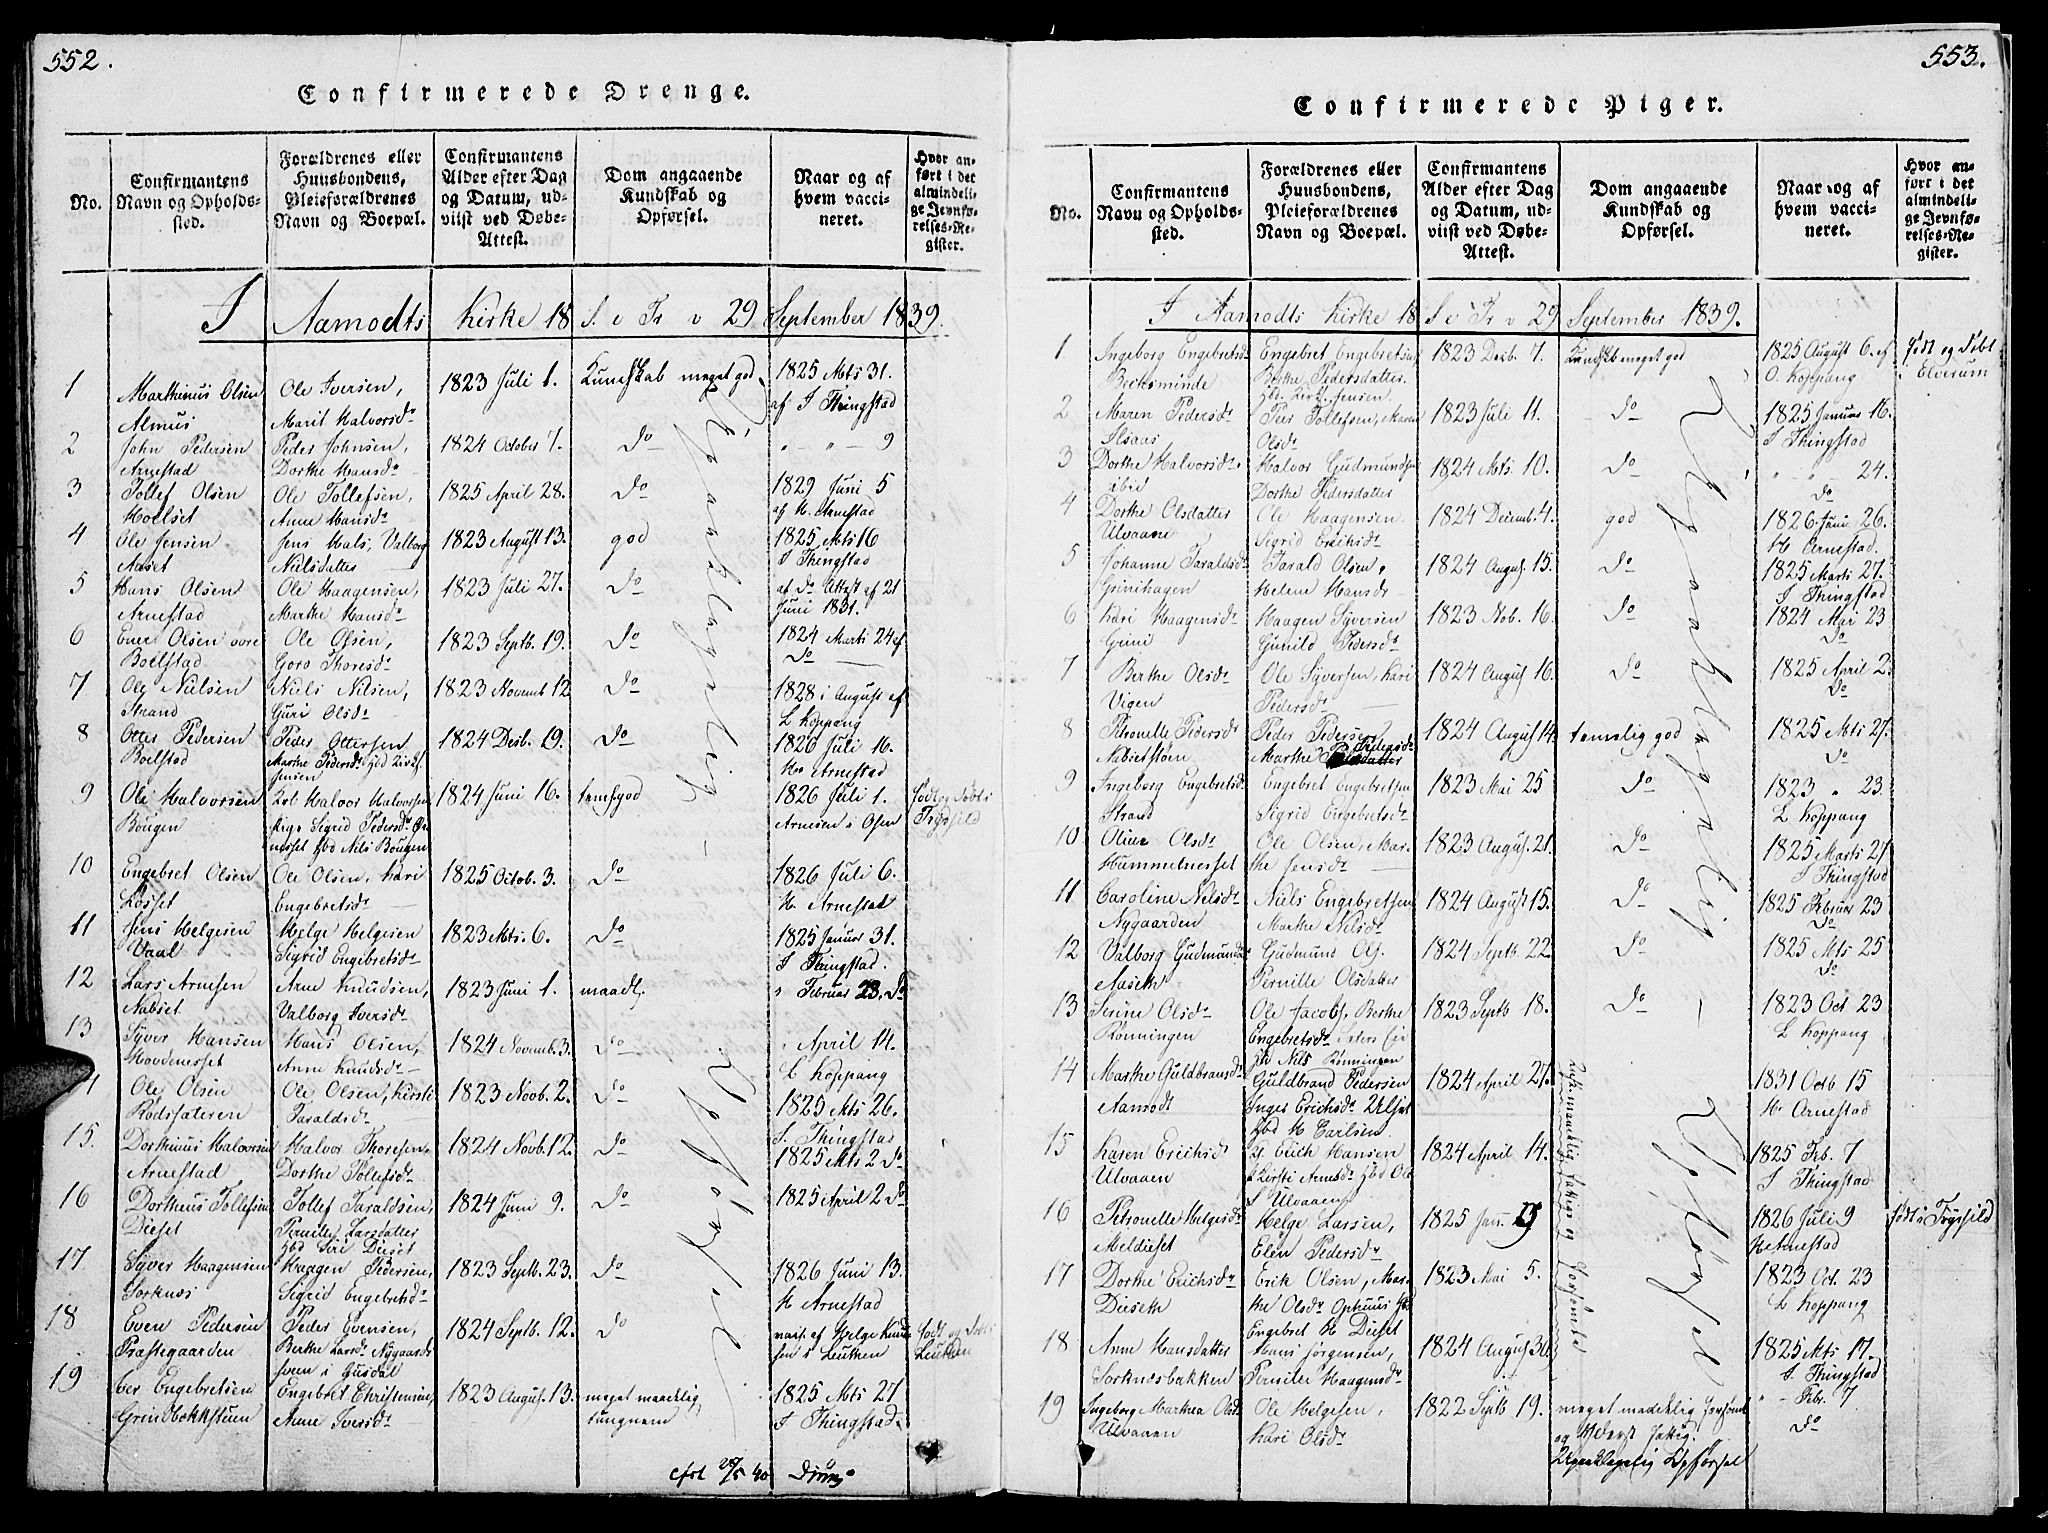 552.
Confirmerede Drenge.
No.
Confirmantens Navn og Opholdssted.
Forældrenes eller Huusbondens, Pleieforældrenes Navn og Boepæl.
Confirmantens Alder efter Dag og Datum, udviist ved Døbe-Attest.
Dom angaaende Kundskab og Opførsel.
Naar og af hvem vaccineret.
Hvor anført i det almindelige Jevnførelses-Register.
I Aamodts Kirke 18 S. e Tr v 29 September 1839.
1 Marthinus Olsen Ole Iversen, 1823 Juli 1. Kundskab meget god, 1825 Mts 31.
Almus Marit Halvorsdr af J Thingstad
2 John Pedersen Peder Johnsen, 1824 October 7. do " " — 9
Arnestad Dorthe Hansdr
3 Tollef Olsen Ole Tollefsen, 1825 April 28. do 1829 Juni 5
Moelset Anne Hansdr af H. Arnestad
4 Ole Jensen Jens Hals, Valborg 1823 August 13. god 1825 Mts 16
Aaset Nielsdatter J Thingstad
5 Hans Olsen Ole Haagensen, 1823 Juli 27. do af do Attest af 21
Arnestad Marthe Hansdr Juni 1831.
6 Ener Olsen øvre Ole Olsen, 1823 Septb. 19. do 1824 Marti 24 af
Boelstad Goro Thoresdr do
7 Ole Nielsen Niels Nilsen, 1823 Novemb 12 do 1828 i August af
Strand Guri Olsdr L Koppang
8 Otter Pedersen Peder Ottersen 1824 Desb. 19. do 1826 Juli 16.
Boelstad Marthe Pedersdr Jensen H. Arnestad
9 Ole Halvorsen Halvor Halvorsen 1824 Juni 16. temgod 1826 Juli 1. født og døbt
Bougen Sigrid Pedersdr Arnesen i Osen Trysild
nesset Hbd Nils Bougen
10 Engebret Olsen Ole Olsen, Kari 1825 Octob. 3. do 1826 Juli 6.
Losset Engebretsdr H. Arnestad
11 Jens Helgesen Helge Helgesen 1823 Mts. 6. do 1825 Januar 31.
Vaal Sigrid Engebretsdr J Thingstad.
12 Lars Arnesen Arne Knudsen, 1823 Juni 1. maadl. " Februar 23. do
Nabset Valborg Iversdr
13 Syver Hansen Hans Olsen, 1824 Novemb. 3. do " April 14.
Hovdenesset Anne Knudsdr L Koppang
14 Ole Olsen Ole Olsen, Kirsti 1823 Novb. 2. do 1825 Mts 26.
Rødsæteren Taraldsdr J. Thingstad
15. Dorthinus Halvorsen Halvor Thoresen, 1824 Novb. 12. do 1825 Mts 2 do
Arnestad Dorthe Tollefsdr
16 Dortheus Tollefsen Tollef Taraldsen, 1824 Juni 9. do 1825 April 2 do
Dieset Pernille Larsdatter
Hbd Siri Dieset
17 Syver Haagensen Haagen Pedersen, 1823 Septb. 23. do 1826 Juni 13.
Sorknes Sigrid Engebretsdr H Arnestad
18 Even Pedersen Peder Evensen, 1824 Septb. 12. do vacc. af Helge Knudsen i Leuthen født og døbt
Præstgaarden Berthe Larsdr Nygaards Leuthen
sveen i Gusdal
19 Engebretsen Engebret Christensen, 1823 August. 13. meget maadelig 1825 Mts 27
Grindbækkstuen Anne Iversdr tungnem J Thingstad.
Upaaklagelig —
Opførsel —
20/5 40
553.
Confirmerede Piger.
No.
Confirmantens Navn og Opholdssted.
Forældrenes eller Huusbondens, Pleieforældrenes Navn og Boepæl.
Confirmantens Alder efter Dag og Datum, udviist ved Døbe-Attest.
Dom angaaende Kundskab og Opførsel.
Naar og af hvem vaccineret.
Hvor anført i det almindelige Jevnførelses-Register.
I Aamodts Kirke 18 S e Tr v 29 September 1839.
1. Ingeborg Engebretsdr Engebret Engebretsen, 1823 Desb. 7. Kundskb meget god 1825 August 6. af født og døbt
Becksminde Berthe Pedersdatter. O. Koppang i Elverum
2 Maren Pedersdr Peer Tollefsen, Maren 1823 Juli 11. do 1825 Januar 16.
Alsaas Olsdr J Thingstad
3 Dorthe Halvorsdr. Halvor Gudmundsen 1824 Mts. 10. do " " — 24.
ibid Dorthe Pedersdatter do
4 Dorthe Olsdatter Ole Haagensen 1824 Decemb. 4. god 1826 Juni 26.
Ulvaaen Sigrid Erichsdr H Arnestad.
5 Johanne Taraldsdr Tarald Olsen, 1824 August. 15. do 1825 Marti 27.
Grinihagen Helene Hansdr J Thingstad
6 Kari Haagensdr Haagen Syversen 1823 Nob. 16. do 1824 Mai 23
Grini Gunild Pedersdr do
7 Berthe Olsdr Ole Syversen, Kari 1824 August 16. do 1825 April 2.
Vigen Pedersdr do
8 Petronelle Pedersdr Peder Pedersen 1824 August 14. temelig god 1825 Mts 27.
Nabsetstøen Marthe Pedersdr do
9 Ingeborg Engebretsdr Engebret Engebretsen 1823 Mai 25 do 1823 " 23
Strand Sigrid Engebretsdr L Koppang
10 Oline Olsdr Ole Olsen, Mar- 1823 August. 21. do 1825 Marts 27
Hummelnesset the Jensdr J Thingstad
11 Caroline Nilsdr Niels Engebretsen 1824 August 15. do 1825 Februar 23
Nygaarden Marthe Nilsdr do
12 Valborg Gudmundsdr Gudmund Ols. 1824 Septb. 22. do 1825 Mts 25
Aaseth Pernille Olsdatter do
13 Serine Olsdr Ole Jacobs. Berthe 1823 Septb 18. do 1823 Oct 23
Rønningen Engebretsdr L Koppang
Nils Rønningen
14 Marthe Guldbransdr Guldbrand Pedersen 1824 April 27. 1831 Octb 15
Aamodt Inger Erichsdr H. Arnestad
Hbd H Carlsen
15 Karen Erichsdr Erich Hansen 1824 April 14. 1825 Feb. 7
Ulvaaen Kirsti Arnesdr Hbd Ole J Thingstad
S Ulvaaen
16 Petronelle Helgesdr Helge Larsen, 1825 Jan. 1826 Juli 9 født i Trysild
Meldieset Elen Pedersdr H Arnestad
17 Dorthe Erichsdr Erik Olsen, Mar- 1823 Mai 5. 1823 Oct. 23
Dieseth the Olsdr Ophuus L Koppang
Engebret H Dieset
18 Anne Hansdatter Hans Jørgensen, 1824 August 30 1825 Mts 17.
Sorknesbakken Pernille Haagensdr J. Thingstad
19 Ingeborg Marthea Olsdr Ole Helgesen, 1822 Septb 19. meget maadelig forsømt " — Feb. 7
Ulvaaen Kari Olsdr og yderst fattig. do
Upaaklagelig Opførsel
Upaaklagelig —
Opførsel